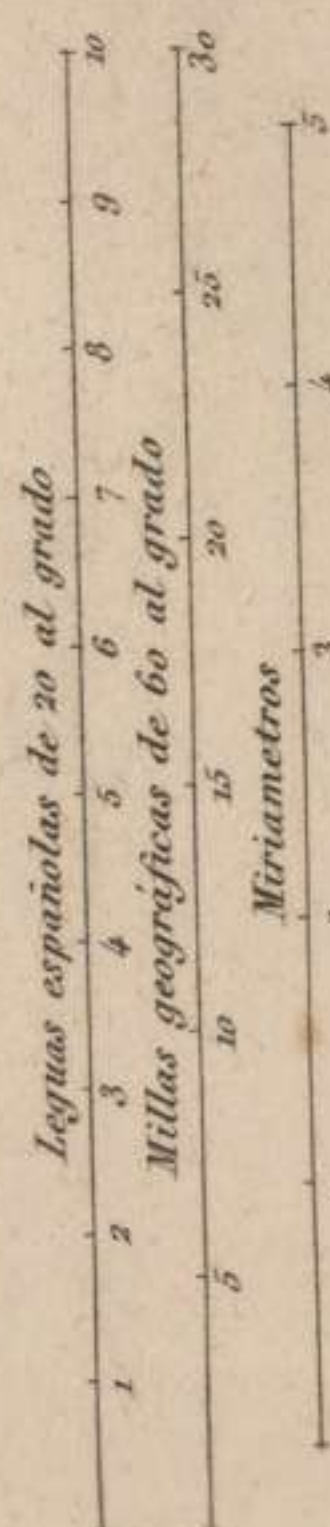 Leguas españolas de 20 al grado
1 2 3 4 5 6 7 8 9 10
Millas geográficas de 60 al grado
5 10 15 20 25 30
Miriametros
3 4 5